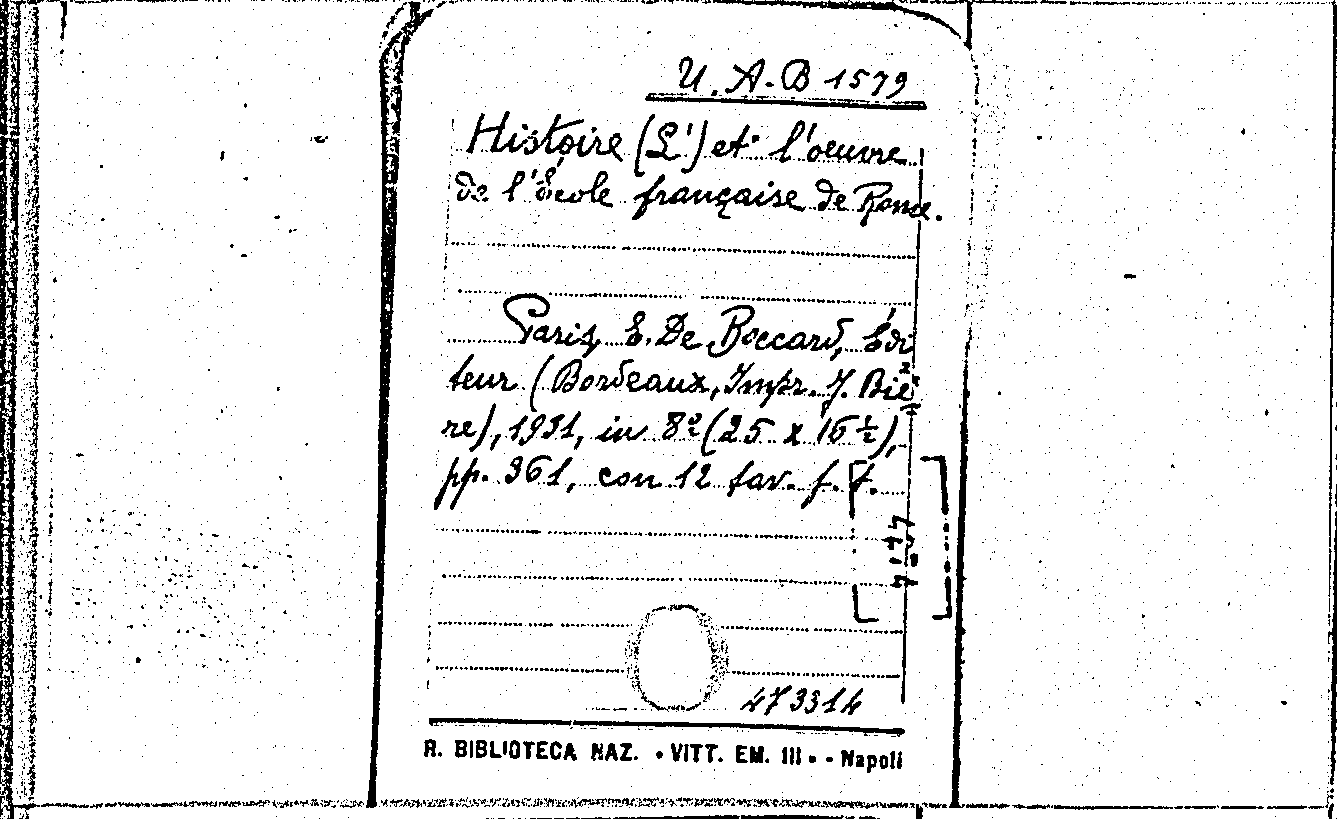 U. A. B 1579
Histoire (L') et l'oeuvre
de l'École française de Rome.
Paris, E. De Boccard, Édi
teur (Bordeaux, Impr. J. Biè=
re), 1931, in 8º (25 x 16 ½),
pp. 361, con 12 tav. f. t.
473314
R. BIBLIOTECA NAZ. • VITT. EM. III • - Napoli